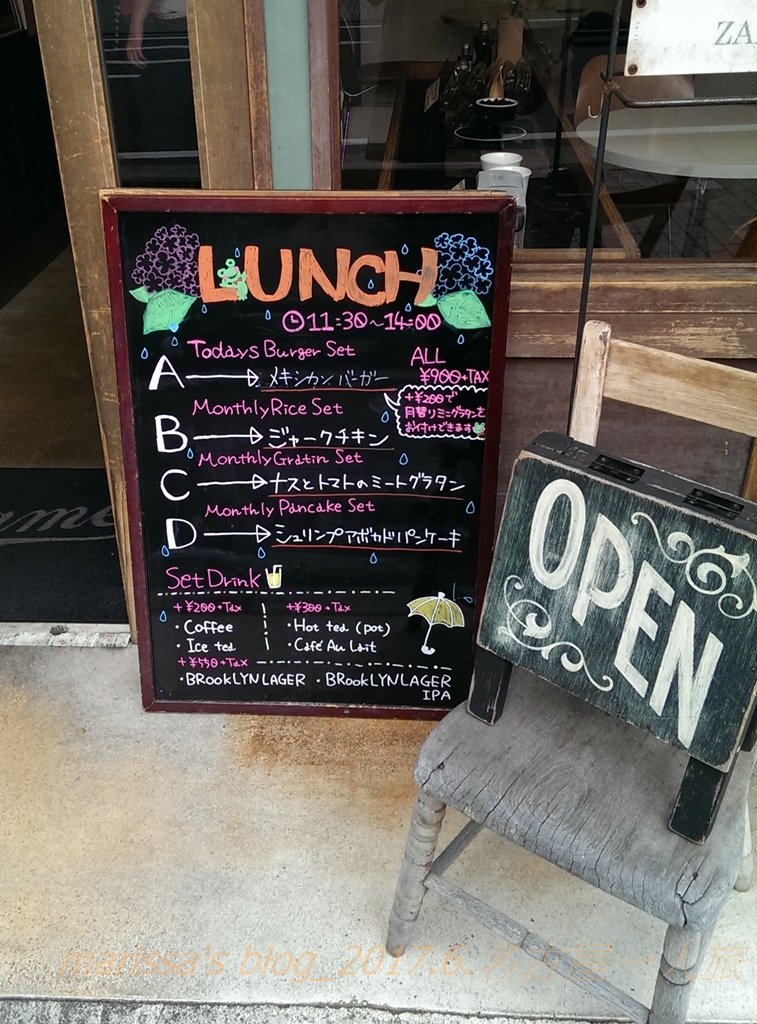 ZA
LUNCH
11:30~14:00
Todays Burger Set
ALL
¥900+TAX
A メキシカンバーガー
+¥200で
月替りミニグラタンを
お付けできます
Monthly Rice Set
B ジャークチキン
Monthly Gratin Set
C ナスとトマトのミートグラタン
Monthly Pancake Set
D シュリンプアボカドパンケーキ
Set Drink
+¥200+Tax
+¥300+Tax
・Coffee
・Hot tea (pot)
・Ice tea
・Café Au Lait
+¥550+Tax
・BROOKLYN LAGER ・BROOKLYN LAGER
IPA
OPEN
marissa's blog_2017.6. 名古屋一人旅